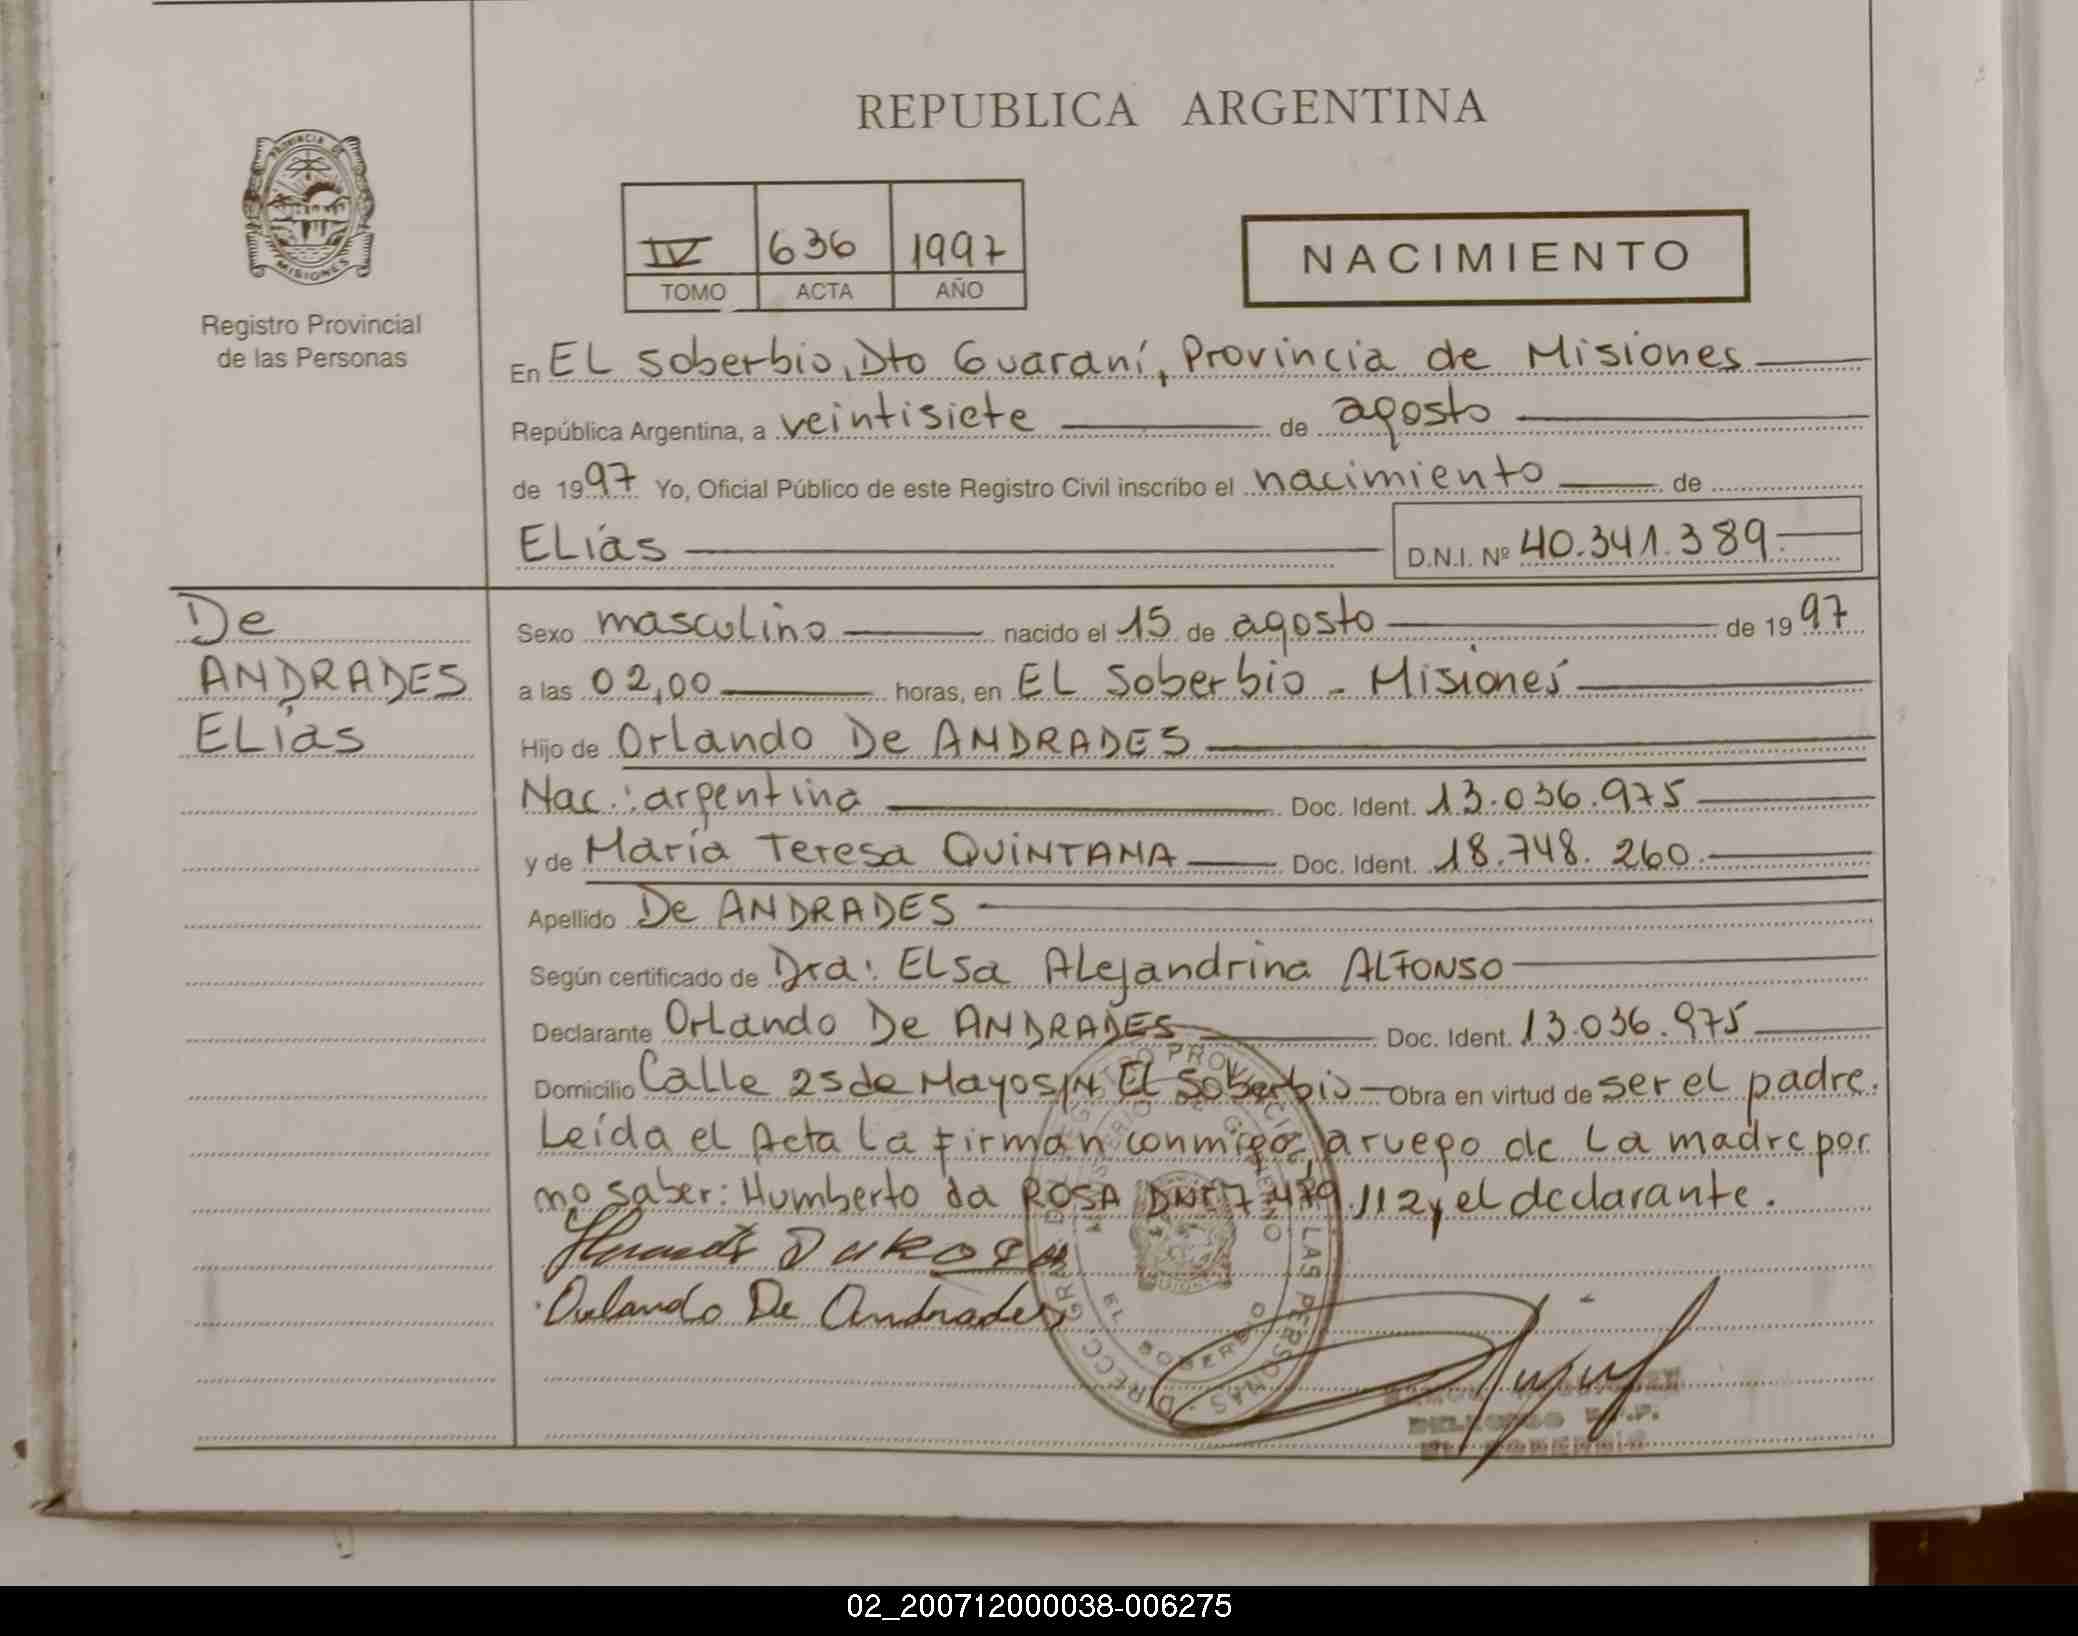 REPUBLICA ARGENTINA
PROVINCIA DE
MISIONES
Registro Provincial
de las Personas
IV 636 1997
TOMO ACTA AÑO
NACIMIENTO
En EL Soberbio, Dto Guaraní, Provincia de Misiones
República Argentina, a veintisiete de agosto
de 1997 Yo, Oficial Público de este Registro Civil inscribo el nacimiento de
ELías D.N.I. Nº 40.341.389
De
ANDRADES
ELías
Sexo masculino nacido el 15 de agosto de 1997
a las 02,00 horas, en EL Soberbio - Misiones
Hijo de Orlando De ANDRADES
Nac.: argentina Doc. Ident. 13.036.975
y de María Teresa QUINTANA Doc. Ident. 18.748.260
Apellido De ANDRADES
Según certificado de Dra: ELsa ALejandrina ALFONSO
Declarante OrLando De ANDRADES Doc. Ident. 13.036.975
Domicilio Calle 25 de Mayo S/N El Soberbio Obra en virtud de ser el padre.
Leída el Acta La firman conmigo, a ruego de La madre por
no saber: Humberto da ROSA DNI 7.479.112 y el declarante.
Orlando De Andrades
02_200712000038-006275